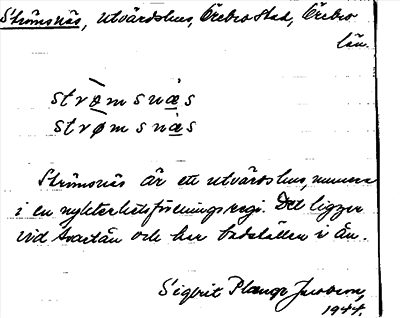 Strömsnäs, utvärdshus, Örebro stad, Örebro
län.
strömsnäs
strømsnæs
Strömsnäs är ett utvärdshus, numera
i en nykterhetsförenings regi. Det ligger
vid Svartån och har badställen i ån.
Sigbrit Plænge Jacobson,
1944.